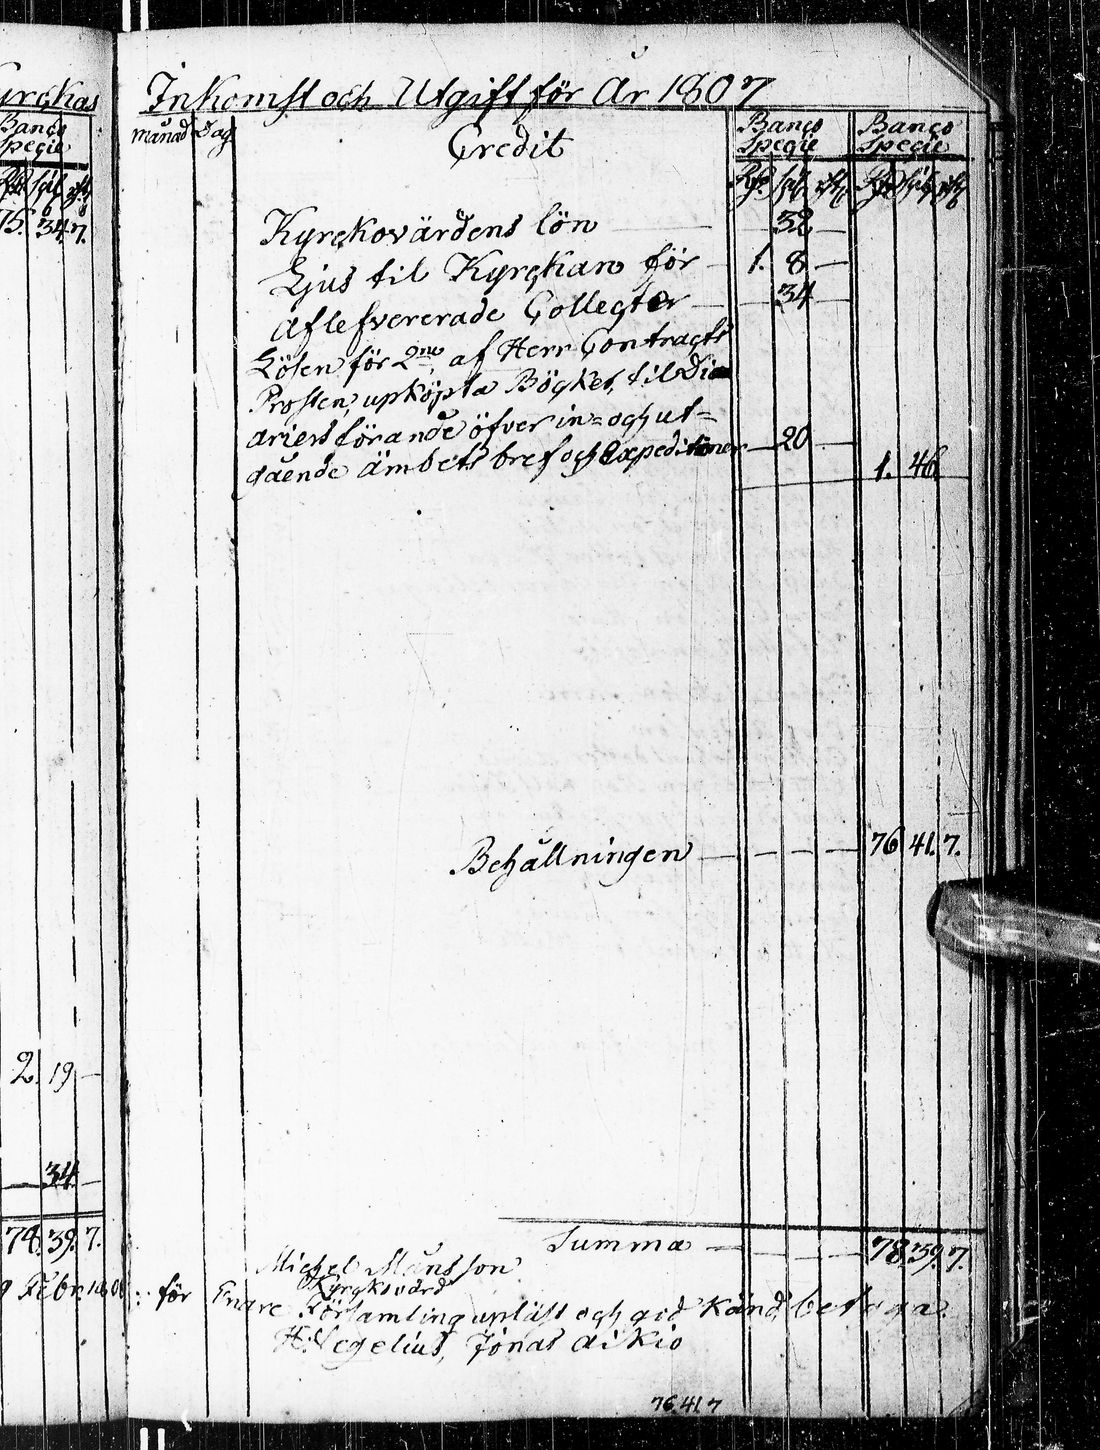 yrckas
Banco
Specie
75. 34. 7.
2. 19 —
— 34. —
74. 39. 7.
9 Febr. 1808
Inkomst och Utgift för År 1807
Månad Dag
Credit
Banco Specie Banco Specie
Kyrckovärdens lön — 32 —
Ljus til Kyrckan för — 1. 8 —
Aflefvererade Collecter — 34 —
Lösen för 2ne af Herr Contracts
Prosten, upköpta Böcker, til Di
ariers förande öfver in= och ut=
gående ämbets bref och Expeditioner — 20 —
1. 46.
Behållningen — — — — 76 41. 7.
Summa — — — 78. 39. 7.
Michel Månsson
Kyrckovärd
för Enare Församling upläst och god känd, betyga
H: Hegelius, Jonas Aikio
76. 41 7